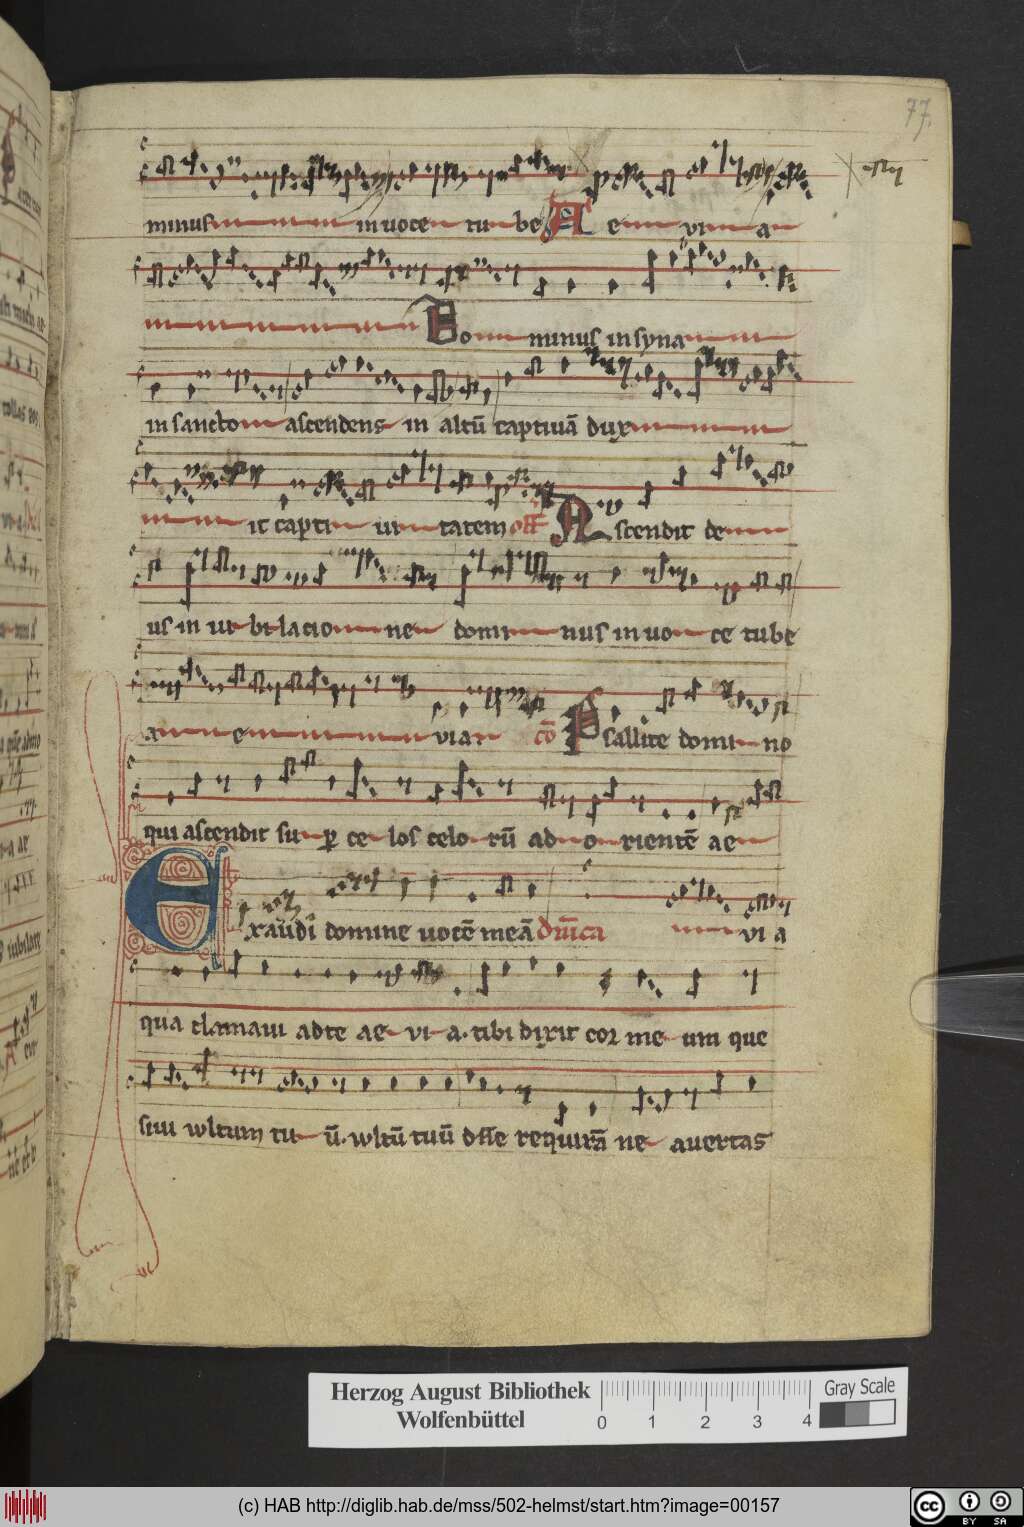 77.
minus in uoce tu be A e vi a
Do minus in syna
in sancto ascendens in altū captiuā dux
it capti ui tatem off Ascendit de
us in iu bi lacio ne domi nus in uo ce tube
a e via co Psallite domi no
qui ascendit su p ce los celo rū ad o rientē ae
Exaudi domine uocē meā Dnica vi a
qua clamaui ad te ae vi a. tibi dixit cor me um que
siui wltum tu ū. wltū tuū dn̄e requirā ne auertas
Herzog August Bibliothek
Wolfenbüttel
0 1 2 3 4
Gray Scale
(c) HAB http://diglib.hab.de/mss/502-helmst/start.htm?image=00157
cc BY SA